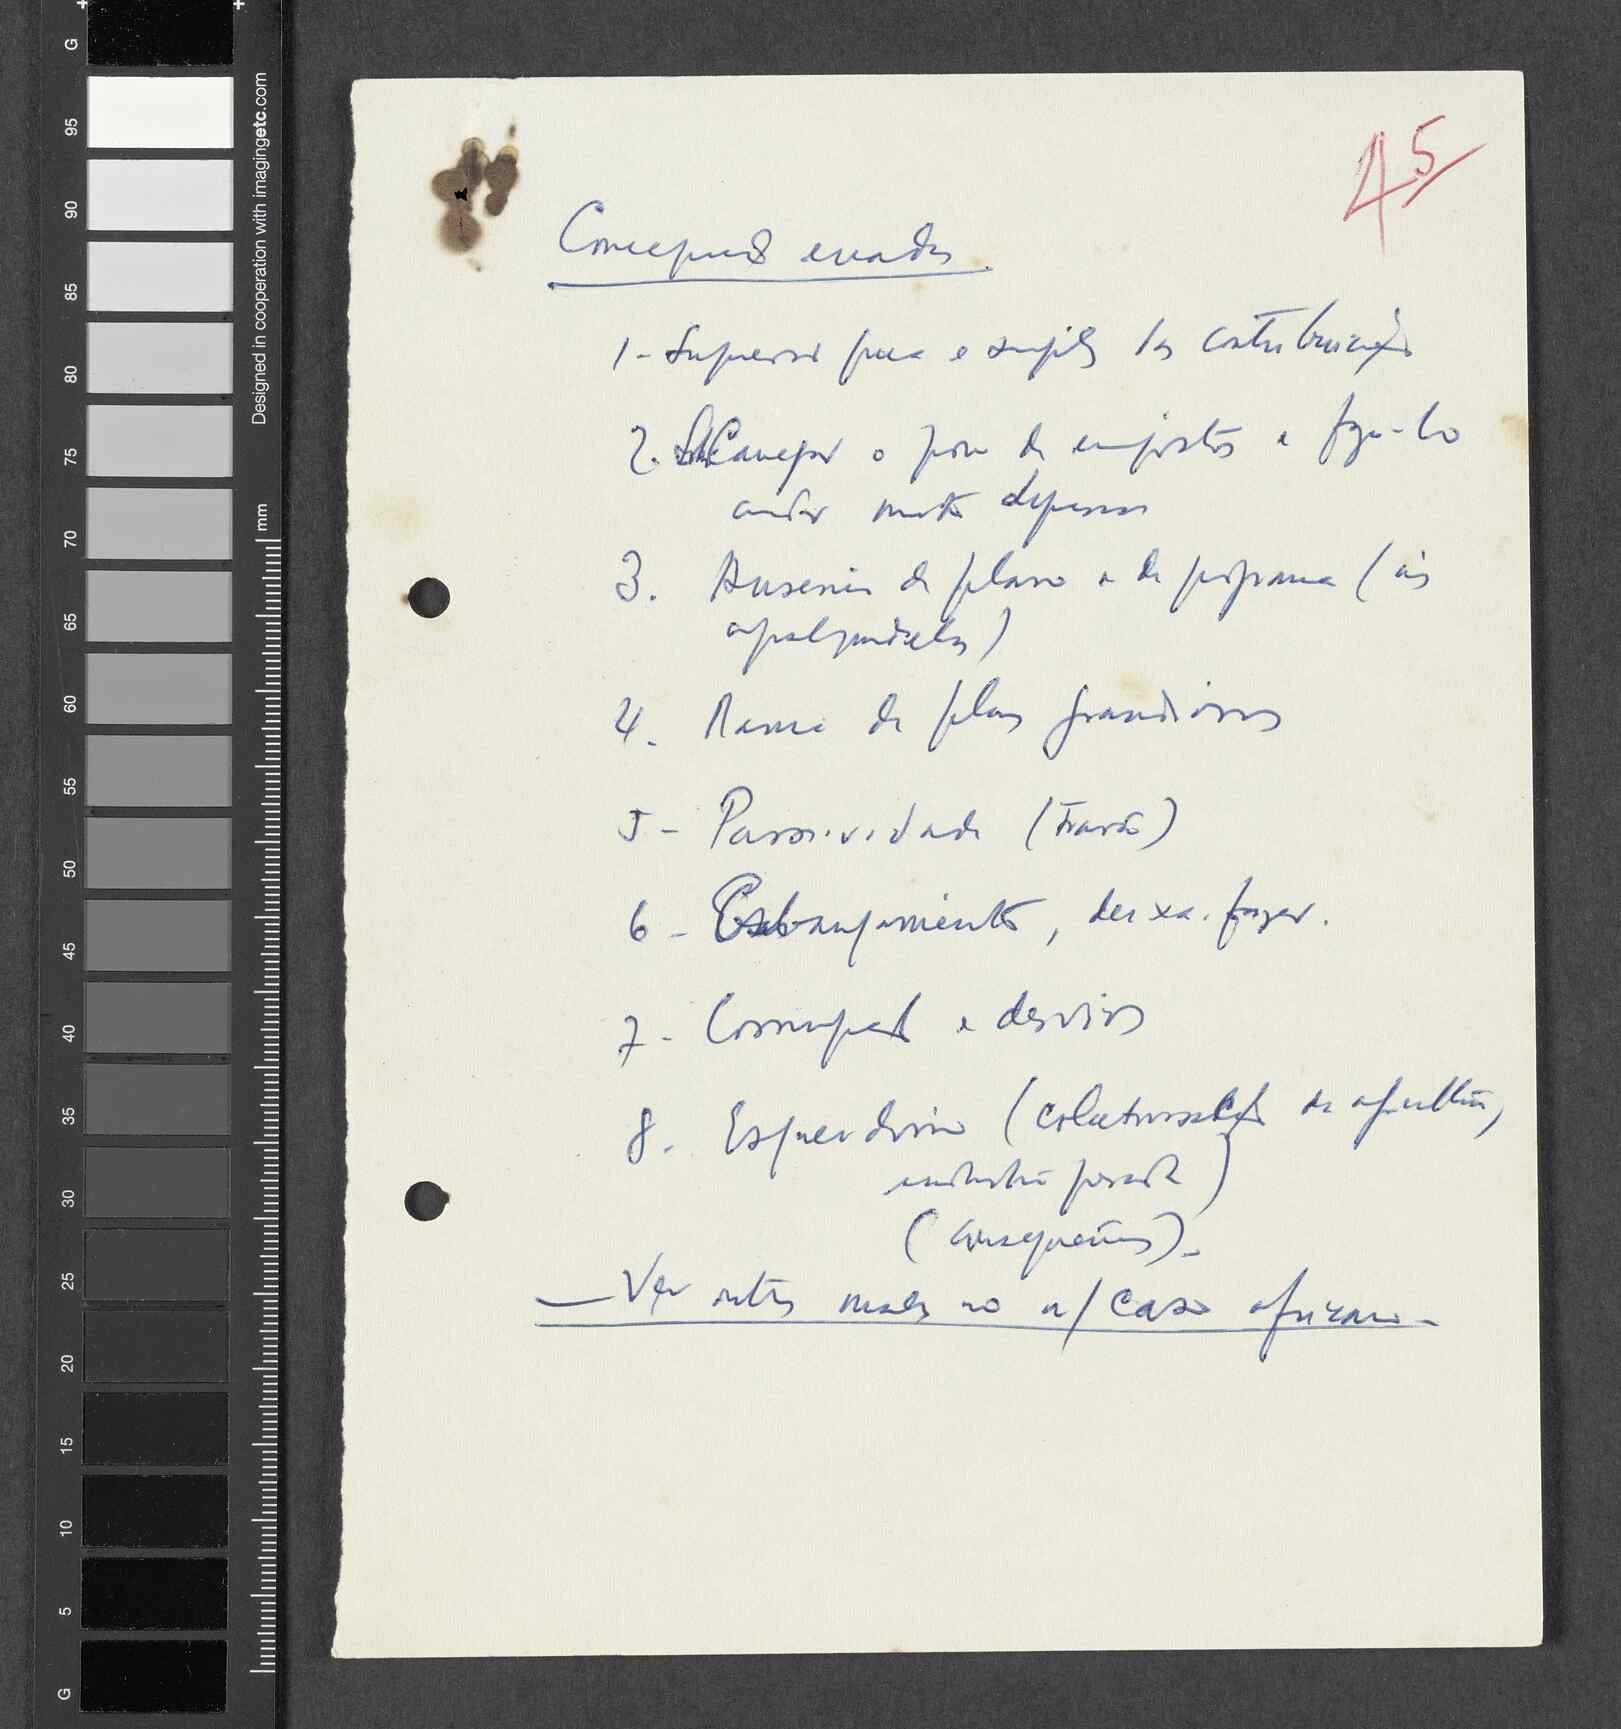 45
Concepções erradas.
1 - Supressão pura e simples das contribuições
2. Carregar o povo de impostos e fazê-lo
andar muito depressa
3. Ausência de plano e de programa (às
apalpadelas)
4. Mania de planos grandiosos
5 - Passividade (travão)
6 - Esbanjamento, deixa-fazer.
7 - Corrupção e desvios
8. Esquerdismo (colectivização da agricultura,
indústria pesada)
(consequências).
— Ver outros males no n/ caso africano.
G
95
90
85
80
75
70
65
60
55
50
45
40
35
30
25
20
15
10
5
G
Designed in cooperation with imagingetc.com
mm